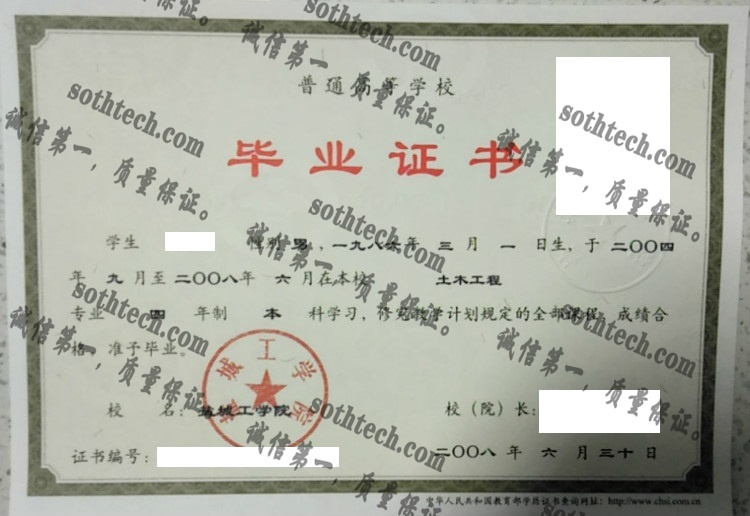 普通高等学校
毕业证书
学生 性别 男，一九八 年 三 月 一 日生，于 二〇〇四
年 九 月至 二〇〇八 年 六 月在本校 土木工程
专业 四 年制 本 科学习，修完教学计划规定的全部课程，成绩合
格，准予毕业。
校 名：盐城工学院 校（院）长：
证书编号： 二〇〇八 年 六 月 三十 日
中华人民共和国教育部学历证书查询网址：http://www.chsi.com.cn
盐城工学院
sothtech.com
诚信第一，质量保证。
sothtech.com
诚信第一，质量保证。
sothtech.com
诚信第一，质量保证。
sothtech.com
诚信第一，质量保证。
sothtech.com
诚信第一，质量保证。
sothtech.com
诚信第一，质量保证。
sothtech.com
诚信第一，质量保证。